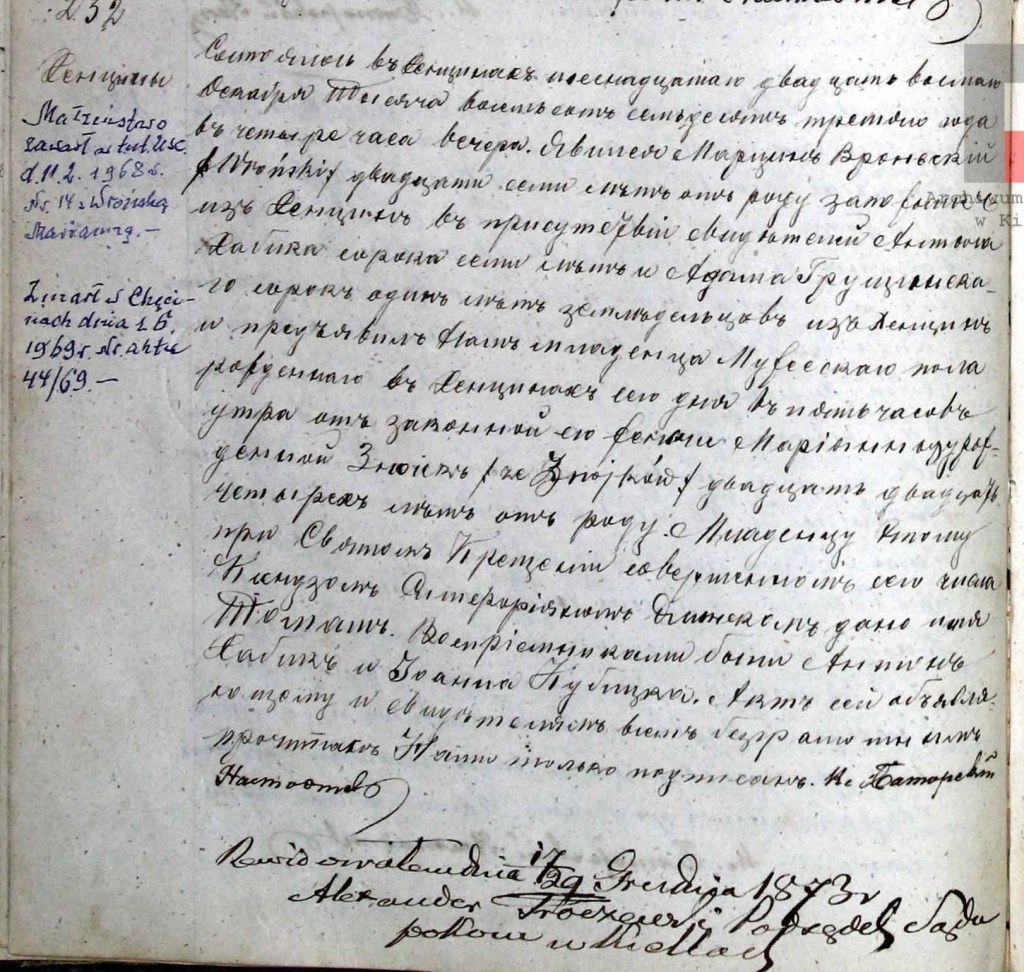 232
Хенцины
Małżeństwo
zawarł w tut. USC.
d. 11.2. 1968 r.
Nr. 14 z Wrońską
Marianną. –
Zmarł w Chęci-
nach dnia 16.
1969 r. Nr. aktu
44/69. –
Состоялось въ Хенцинахъ шеснадцатаго двадцать восьмаго
Декабря Тысяча восемьсотъ семьдесятъ третьяго года
въ четыре часа вечера. Явился Марцинъ Вроньскій
/Wroński/ двадцати семи лѣтъ отъ роду
изъ Хенцинъ въ присутствіи свидѣтелей Антона
Хабика сорока семи лѣтъ и Адама Грущинска-
го сорокъ одинъ лѣтъ земледельцовъ изъ Хенцинъ
и предъявилъ Намъ младенца Мужескаго пола
рожденнаго въ Хенцинахъ сего дня въ пять часовъ
утра отъ законной его жены Маріянны урож-
денной двадцать
четырехъ лѣтъ отъ роду. Младенцу этому
при Святомъ Крещеніи совершенномъ сего числа
Ксендзомъ дано имя
Томашъ. Воспріемниками были Антонъ
Хабикъ и Іоанна Кубицка. Актъ сей объявля-
ющему и свидѣтелямъ всемъ безграмотнымъ
прочитанъ Нами только подписанъ. Кс
Настоятель
Rewidowałem dnia 17/29 Grudnia 1873 r
Alexander Podsędek Sądu
pokoju w Kielcach
Archiwum
w Ki